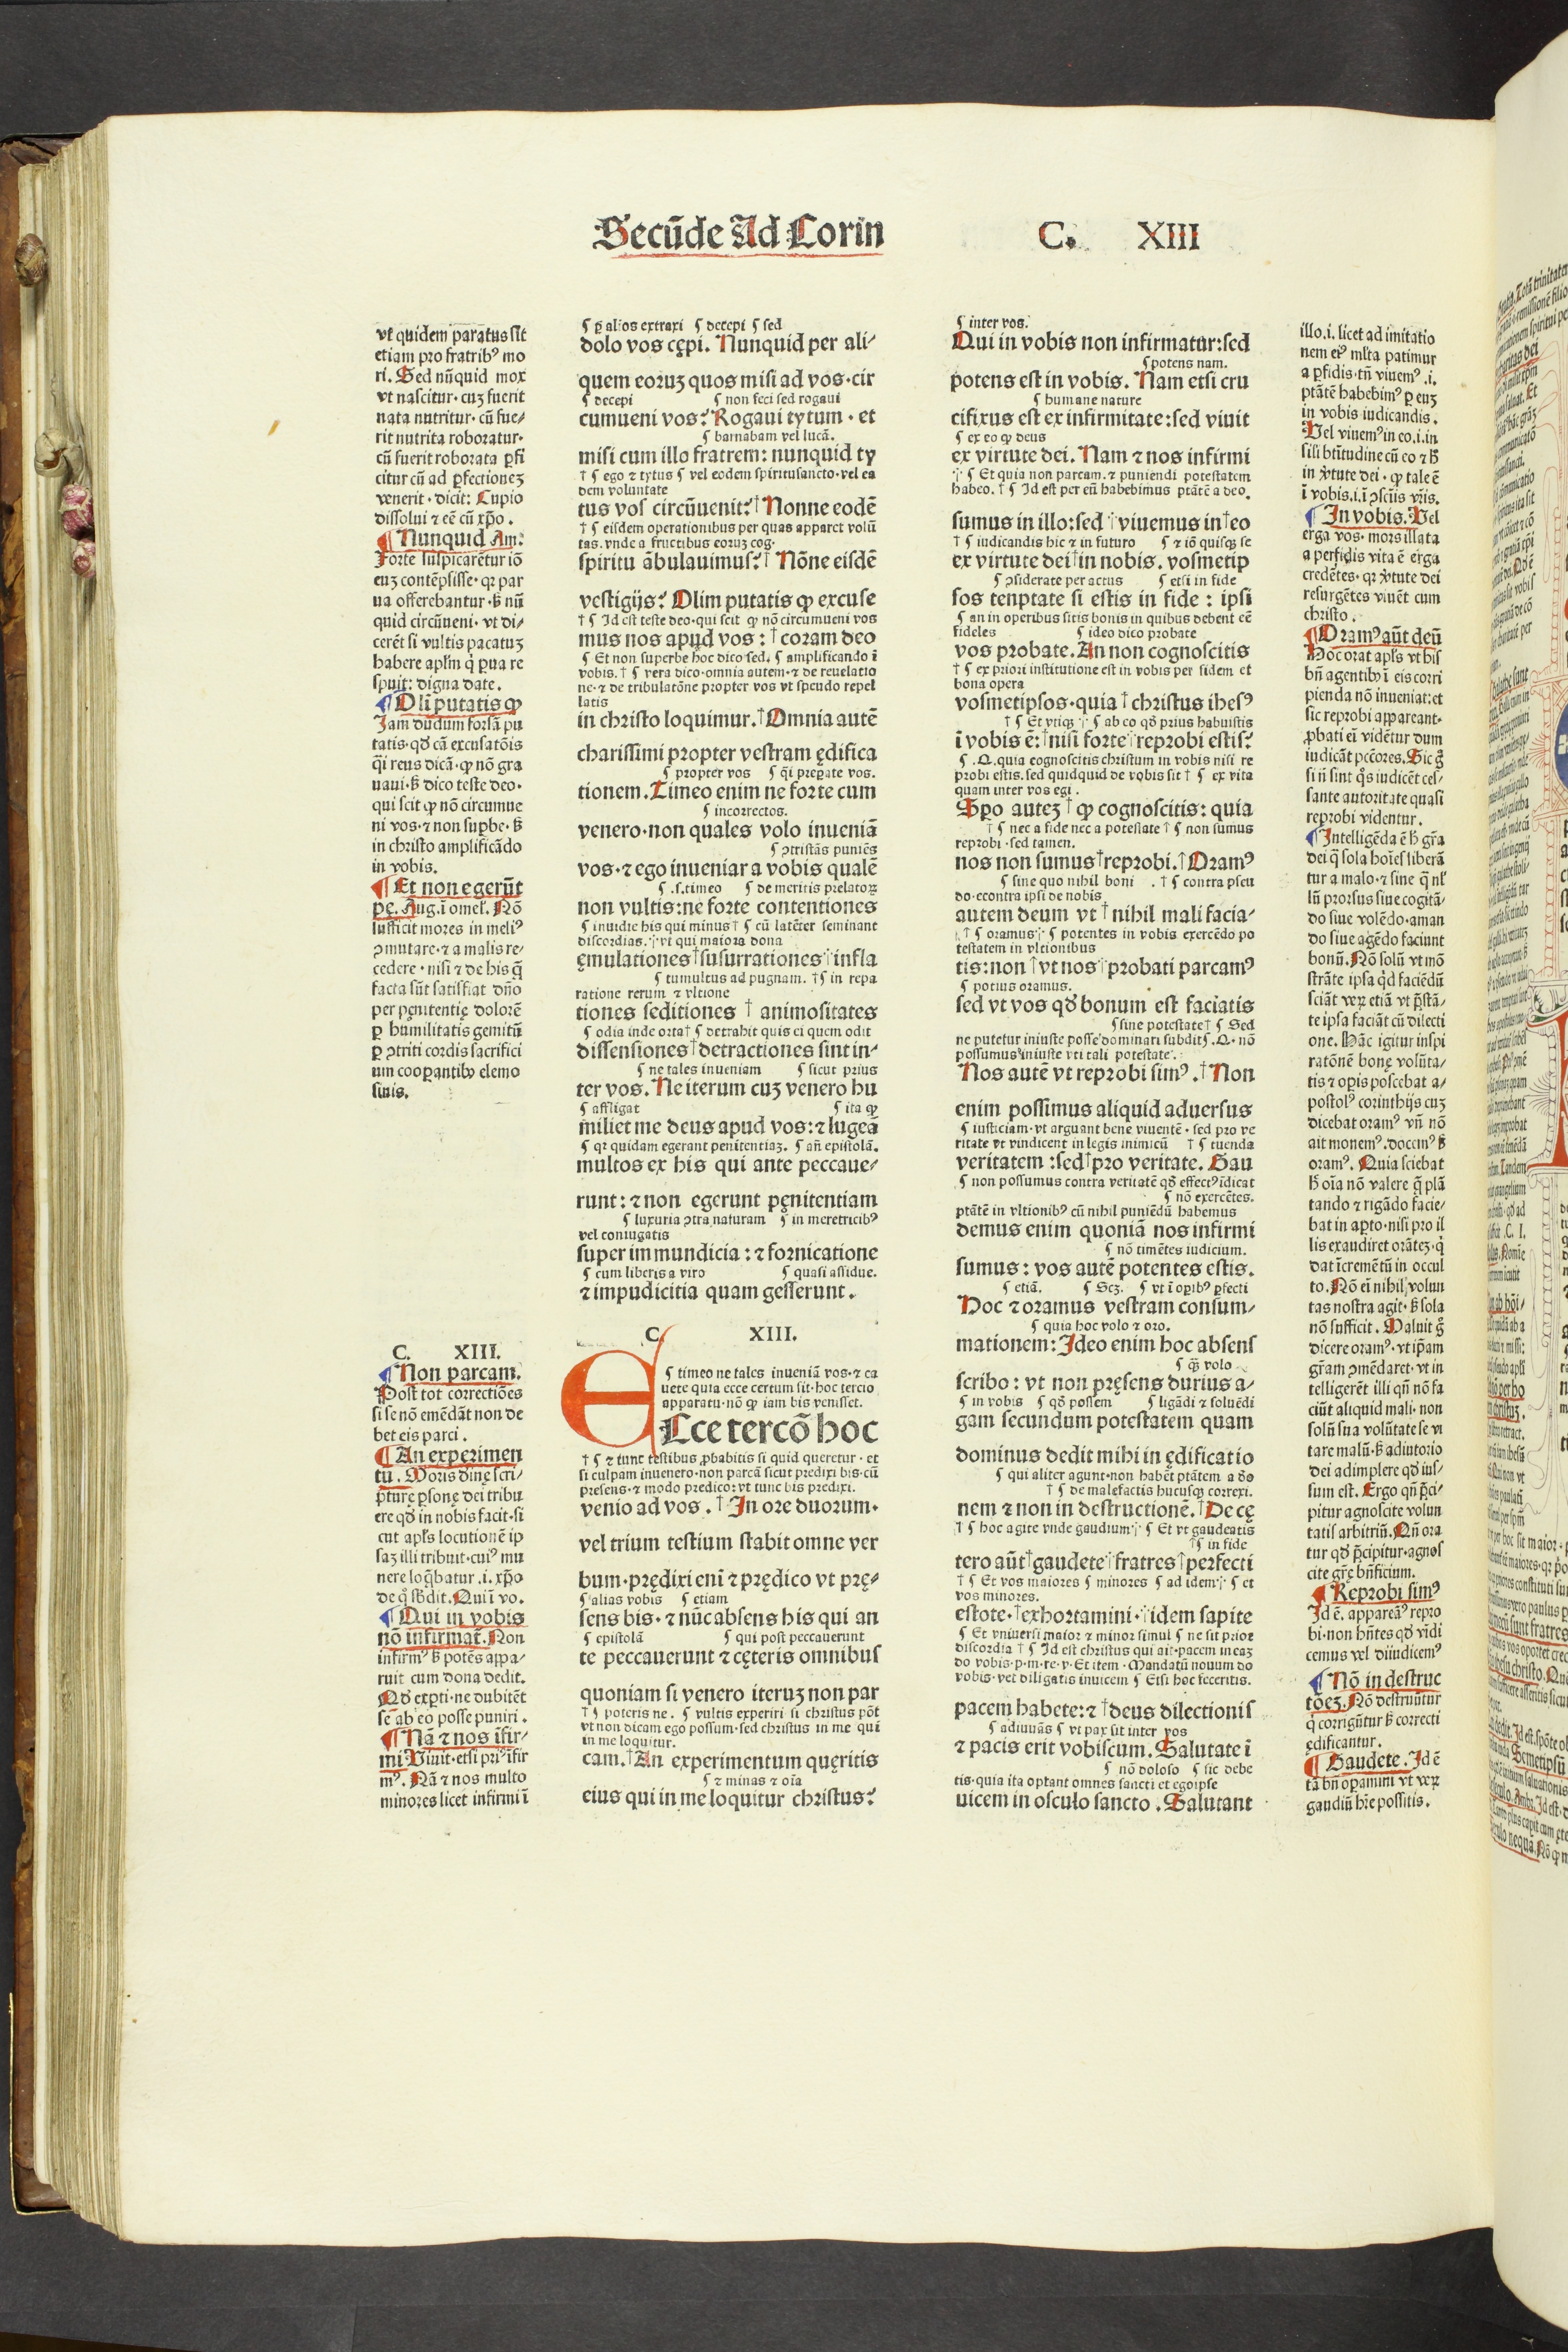 Secūde Ad Corin C. XIII
vt quidem paratus sit
etiam pro fratribꝰ mo
ri. Sed nūquid mox
vt nascitur· cuꝫ fuerit
nata nutritur· cū fue⸗
rit nutrita roboratur·
cū fuerit roborata ꝑfi
citur cū ad ꝑfectioneꝫ
venerit· dicit: Cupio
dissolui ⁊ eē cū xp̄o.
¶ Nunquid Am:
Forte suspicaretur iō
euꝫ contēpsisse· qꝛ par
ua offerebantur· ẞ nū
quid circūueni· vt di⸗
cerēt si vultis pacatuꝫ
habere apl̄m q̇ ꝑua re
spuit: digna date.
¶ Olī putatis ꝙ
Jam dudum forsā pu
tatis· qđ cā excusatōis
q̄i reus dicā· ꝙ nō gra
uaui· ẞ dico teste deo·
qui scit ꝙ nō circumue
ni vos· ⁊ non suꝑbe· ẞ
in christo amplificādo
in vobis.
¶ Et non egerūt
pę. Aug. ī omel̄. Nō
sufficit mores in meliꝰ
ꝯmutare· ⁊ a malis re⸗
cedere· nisi ⁊ de his q̄
facta sūt satisfiat dn̄o
per pęnitentię dolorē
ꝑ humilitatis gemitū
ꝑ ꝯtriti cordis sacrifici
um cooꝑantibꝰ elemo
sinis.
C. XIII.
¶ Non parcam.
Post tot correctiōes
si se nō emēdāt non de
bet eis parci.
¶ An experimen
tu. Moris diuinę scri⸗
pturę ꝑsonę dei tribu
ere qđ in nobis facit· si
cut apl̄s locutionē ip
saꝫ illi tribuit· cuiꝰ mu
nere loq̄batur .i. xp̄o
de q̊ sb̄dit. Qui ī vo.
¶ Qui in vobis
nō infirmat̄. Non
infirmꝰ ẞ potēs appa⸗
ruit cum dona dedit.
Qđ exꝑti· ne dubitēt
se ab eo posse puniri.
¶ Nā ⁊ nos īfir⸗
mi. Viuit· etsi priꝰ īfir
mꝰ. Nā ⁊ nos multo
minores licet infirmi ī
¶ ꝑ alios extraxi ¶ decepi ¶ sed
dolo vos cępi. Nunquid per ali⸗
quem eoruꝫ quos misi ad vos· cir
¶ decepi ¶ non feci sed rogaui
cumueni vos? Rogaui tytum· et
¶ barnabam vel lucā.
misi cum illo fratrem: nunquid ty
† ¶ ego ⁊ tytus ¶ vel eodem spiritusancto· vel ea
dem voluntate
tus vos circūuenit? † Nonne eodē
† ¶ eisdem operationibus per quas apparet volū
tas· vnde a fructibus eoruꝫ cog·
spiritu ābulauimus? † Nōne eisdē
vestigijs? Olim putatis ꝙ excuse
† ¶ Id est teste deo· qui scit ꝙ nō circumueni vos
mus nos apud vos: † coram deo
¶ Et non superbe hoc dico sed. ¶ amplificando ī
vobis. † ¶ vera dico· omnia autem· ⁊ de reuelatio
ne· ⁊ de tribulatōne propter vos vt speudo repel
latis
in christo loquimur. † Omnia autē
charissimi propter vestram ędifica
¶ propter vos ¶ q̄i preꝑate vos.
tionem. Timeo enim ne forte cum
¶ incorrectos.
venero· non quales volo inueniā
¶ ꝯtristās puniēs
vos· ⁊ ego inueniar a vobis qualē
¶ .s. timeo ¶ de meritis prelatoꝝ
non vultis: ne forte contentiones
¶ inuidie his qui minus † ¶ cū latēter seminant
discordias. ⸓ vt qui maiora dona
ęmulationes † susurrationes ⸓ infla
¶ tumultus ad pugnam. † ¶ in repa
ratione rerum ⁊ vltione
tiones seditiones † animositates
¶ odia inde orta † ¶ detrahit quis ei quem odit
dissensiones † detractiones sint in⸗
¶ ne tales inueniam ¶ sicut prius
ter vos. Ne iterum cuꝫ venero hu
¶ affligat ¶ ita ꝙ
miliet me deus apud vos: ⁊ lugeā
¶ qꝛ quidam egerant penitentiaꝫ. ¶ an̄ epistolā.
multos ex his qui ante peccaue⸗
runt: ⁊ non egerunt pęnitentiam
¶ luxuria ꝯtra naturam ¶ in meretricibꝰ
vel coniugatis
super immundicia: ⁊ fornicatione
¶ cum liberis a viro ¶ quasi assidue.
⁊ impudicitia quam gesserunt.
C. XIII.
¶ timeo ne tales inueniā vos· ⁊ ca
uete quia ecce certum sit· hoc tercio
apparatu· nō ꝙ iam bis venisset.
ECce tercō hoc
† ¶ ⁊ tunc testibus ꝓbabitis si quid queretur· et
si culpam inuenero· non parcā sicut predixi bis· cū
presens· ⁊ modo predico: vt tunc bis predixi.
venio ad vos. † In ore duorum·
vel trium testium stabit omne ver
bum· prędixi enī ⁊ prędico vt prę⸗
¶ alias vobis ¶ etiam
sens bis· ⁊ nūc absens his qui an
¶ epistolā ¶ qui post peccauerunt
te peccauerunt ⁊ cęteris omnibus
quoniam si venero iteruꝫ non par
† ¶ poteris ne. ¶ vultis experiri si christus pōt
vt non dicam ego possum· sed christus in me qui
in me loquitur.
cam. † An experimentum quęritis
¶ ⁊ minas ⁊ oīa
eius qui in me loquitur christus?
¶ inter vos.
Qui in vobis non infirmatur: sed
¶ potens nam.
potens est in vobis. Nam etsi cru
¶ humane nature
cifixus est ex infirmitate: sed viuit
¶ ex eo ꝙ deus
ex virtute dei. Nam ⁊ nos infirmi
⸓ ¶ Et quia non parcam. ⁊ puniendi potestatem
habeo. † ¶ Id est per eū habebimus ptātē a deo.
sumus in illo: sed ⸓ viuemus in † eo
† ¶ iudicandis hic ⁊ in futuro ¶ ⁊ iō quisqꝫ se
ex virtute dei † in nobis. vosmetip
¶ ꝯsiderate per actus ¶ etsi in fide
sos tenptate si estis in fide: ipsi
¶ an in operibus sitis bonis in quibus debent eē
fideles ¶ ideo dico probate
vos probate. An non cognoscitis
† ¶ ex priori institutione est in vobis per fidem et
bona opera
vosmetipsos· quia † christus ihesꝰ
† ¶ Et vtiqꝫ ⸓ ¶ ab eo qđ prius habuistis
ī vobis ē: † nisi forte ⸓ reprobi estis?
¶ .Q. quia cognoscitis christum in vobis nisi re
probi estis. sed quidquid de vobis sit † ¶ ex vita
quam inter vos egi.
Spo auteꝫ † ꝙ cognoscitis: quia
† ¶ nec a fide nec a potestate † ¶ non sumus
reprobi· sed tamen.
nos non sumus † reprobi. † Oramꝰ
¶ sine quo nihil boni . † ¶ contra pseu
do· econtra ipsi de nobis
autem deum vt † nihil mali facia⸗
† ¶ oramus ⸓ ¶ potentes in vobis exercēdo po
testatem in vltionibus
tis: non † vt nos ⸓ probati parcamꝰ
¶ potius oramus.
sed vt vos qđ bonum est faciatis
¶ sine potestate † ¶ Sed
ne putetur iniuste posse dominari subdit ¶ .Q. nō
possumus iniuste vti tali potestate.
Nos autē vt reprobi simꝰ. † Non
enim possimus aliquid aduersus
¶ iusticiam· vt arguant bene viuentē· sed pro ve
ritate vt vindicent in legis inimicū † ¶ tuenda
veritatem: sed † pro veritate. Gau
¶ non possumus contra veritatē qđ effectꝰ īdicat
¶ nō exercētes.
ptātē in vltionibꝰ cū nihil puniēdū habemus
demus enim quoniā nos infirmi
¶ nō timētes iudicium.
sumus: vos autē potentes estis.
¶ etiā. ¶ Scꝫ. ¶ vt ī oꝑibꝰ ꝑfecti
Hoc ⁊ oramus vestram consum⸗
¶ quia hoc volo ⁊ oro.
mationem: Ideo enim hoc absens
¶ q̄s volo
scribo: vt non pręsens durius a⸗
¶ in vobis ¶ qđ possem ¶ ligādi ⁊ soluēdi
gam secundum potestatem quam
dominus dedit mihi in ędificatio
¶ qui aliter agunt· non habēt ptātem a deo
† ¶ de malefactis hucusqꝫ correxi.
nem ⁊ non in destructionē. † De cę
† ¶ hoc agite vnde gaudium ⸓ ¶ Et vt gaudeatis
† ¶ in fide
tero aūt † gaudete ⸓ fratres † perfecti
† ¶ Et vos maiores ¶ minores ¶ ad idem ⸓ ¶ et
vos minores.
estote. † exhortamini· ⸓ idem sapite
¶ Et vniuersi maior ⁊ minor simul ¶ ne sit prior
discordia † ¶ Id est christus qui ait· pacem meaꝫ
do vobis· p· m· re· v· Et item· Mandatū nouum do
vobis· vet diligatis inuicem ¶ Etsi hoc feceritis.
pacem habete: ⁊ † deus dilectionis
¶ adiuuās ¶ vt pax sit inter vos
⁊ pacis erit vobiscum. Salutate ī
¶ nō doloso ¶ sic debe
tis· quia ita optant omnes sancti et egoipse
uicem in osculo sancto. Salutant
illo. i. licet ad imitatio
nem eiꝰ ml̄ta patimur
a ꝑfidis· tn̄ viuemꝰ .i.
ptātē habebimꝰ ꝑ euꝫ
in vobis iudicandis.
Vel viuemꝰ in eo. i. in
sili bt̄itudine cū eo ⁊ ẞ
in v̇tute dei· ꝙ tale ē
ī vobis. i. ī ꝯsciis vr̄is.
¶ In vobis. Vel
erga vos· mors illata
a perfidis vita ē erga
credētes· qꝛ v̇tute dei
resurgētes viuēt cum
christo.
¶ Oramꝰ aūt deū
Hoc orat apl̄s vt his
bn̄ agentibꝰ ī eis corri
pienda nō inueniat: et
sic reprobi appareant·
ꝓbati eī vidētur dum
iudicāt pc̄cores. Sic g̊
si n̄ sint q̄s iudicēt ces⸗
sante autoritate quasi
reprobi videntur.
¶ Intelligēda ē h̄ gr̄a
dei q̄ sola hoīes liberā
tur a malo· ⁊ sine q̄ nl̄
lū prorsus siue cogitā⸗
do siue volēdo· aman
do siue agēdo faciunt
bonū. Nō solū vt mō
strāte ipsa q̇d faciēdū
sciāt veꝝ etiā vt p̄stā⸗
te ipsa faciāt cū dilecti
one. Hāc igitur inspi
ratōnē bonę volūta⸗
tis ⁊ oꝑis poscebat a⸗
postolꝰ corinthijs cuꝫ
dicebat oramꝰ. vn̄ nō
ait monemꝰ. docemꝰ ẞ
oramꝰ. Quia sciebat
h̄ oīa nō valere q̄ plā
tando ⁊ rigādo facie⸗
bat in aꝑto· nisi pro il
lis exaudiret orāteꝫ· q̇
dat īcremētū in occul
to. Nō eī nihil volun
tas nostra agit· ẞ sola
nō sufficit. Maluit g̊
dicere oramꝰ· vt ip̄am
gr̄am ꝯmēdaret· vt in
telligerēt illi qn̄ nō fa
ciūt aliquid mali· non
solū sua volūtate se vi
tare malū· ẞ adiutorio
dei adimplere qđ ius⸗
sum est. Ergo qn̄ p̄ci⸗
pitur agnoscite volun
tatis arbitriū. Qn̄ ora
tur qđ p̄cipitur· agnos
cite gr̄ę bn̄ficium.
¶ Reprobi simꝰ
Id ē. appareāꝰ repro
bi· non hn̄tes qđ v̇idi
cemus vel diiudicemꝰ
¶ Nō in destruc
tōeꝫ. Nō destruūtur
q̇ corrigūtur ẞ correcti
ędificantur.
¶ Gaudete. Id ē
tā bn̄ oꝑamini vt veꝝ
gaudiū hr̄e possitis.